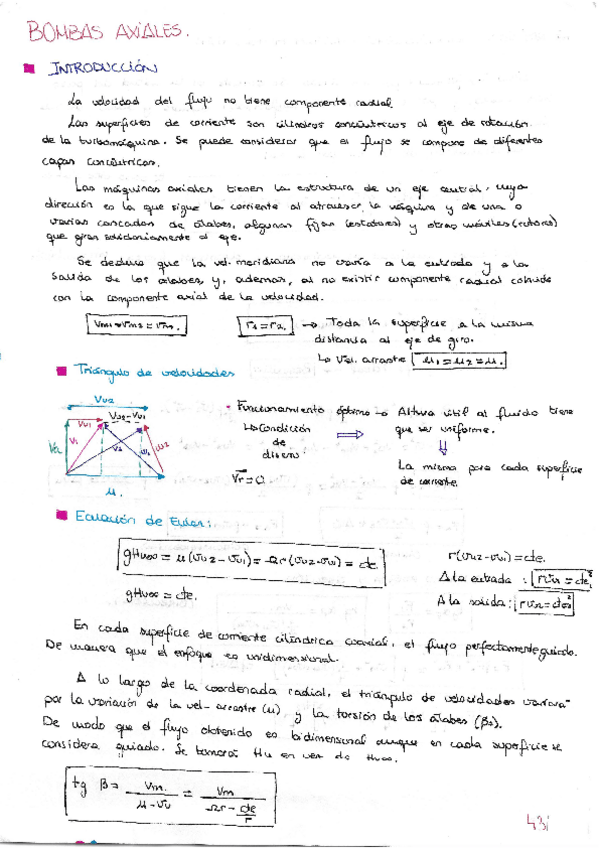 BOMBAS AXIALES.
INTRODUCCIÓN
La velocidad del flujo no tiene componente radial.
Las superficies de corriente son cilindros concéntricos al eje de rotación
de la turbomáquina. Se puede considerar que el flujo se compone de diferentes
capas concéntricas.
Las máquinas axiales tienen la estructura de un eje central, cuya
dirección es la que sigue la corriente al atravesar la máquina y de una o
varias cascadas de álabes, algunas fijas (estatores) y otras móviles (rotores)
que giran solidariamente al eje.
Se deduce que la vel. meridiana no varía a la entrada y a la
salida de los álabes, y, además, al no existir componente radial coincide
con la componente axial de la velocidad.
Vm1 = Vm2 = Vm. r1 = r2. → Toda la superficie a la misma
distancia al eje de giro.
La Vel. arrastre u1 = u2 = u.
Triángulo de velocidades
Vu2
Vu2-Vu1
Vu1
Va V1 V2 w1 w2
u.
- Funcionamiento óptimo → Altura útil al fluido tiene
Condición ⇒ que ser uniforme.
de
diseño ⇓
Vr = 0. La misma para cada superficie
de corriente.
Ecuación de Euler:
gHu∞ = u(Vu2 - Vu1) = Ωr(Vu2 - Vu1) = cte r(Vu2-Vu1) = cte.
A la entrada :
gHu∞ = cte. A la salida :
En cada superficie de corriente cilíndrica coaxial, el flujo perfectamente guiado.
De manera que el enfoque es unidimensional.
A lo largo de la coordenada radial, el triángulo de velocidades variará
por la variación de la vel. arrastre (u) y la torsión de los álabes (β2).
De modo que el flujo obtenido es bidimensional aunque en cada superficie se
considera guiado. Se tomará Hu en vez de Hu∞.
tg β = Vm / (u - Vu) = Vm / (Ωr - cte/r)
43/